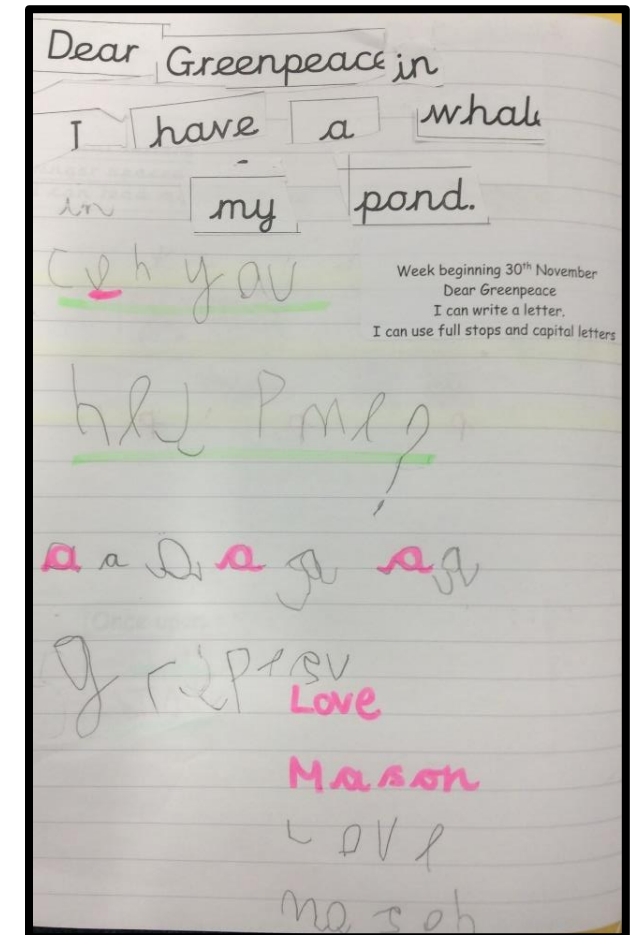 Dear Greenpeace in
I have a whale
in my pond.
ceh you
Week beginning 30th November
Dear Greenpeace
I can write a letter.
I can use full stops and capital letters
help me?
a a a a a a a
Love
Mason
Love
mason